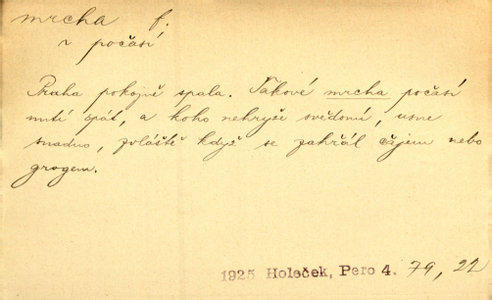 mrcha f.
v počasí
Praha pokojně spala. Takové mrcha počasí
nutí spát, a koho nehryže svědomí, usne
snadno, zvláště když se zahřál čajem nebo
grogem.
1925 Holeček, Pero 4. 79, 22